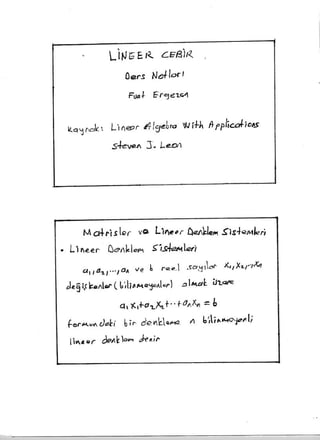 LİNEER CEBİR
Ders Notları
Fuat Ergezen
Kaynak: Linear Algebra With Applications
Steven J. Leon
Matrisler ve Lineer Denklem Sistemleri
• Lineer Denklem Sistemleri
a₁, a₂, ..., aₙ ve b reel sayılar x₁, x₂, ..., xₙ
değişkenler (bilinmeyenler) olmak üzere
a₁x₁+a₂x₂+...+aₙxₙ = b
formundaki bir denkleme n bilinmeyenli
lineer denklem denir